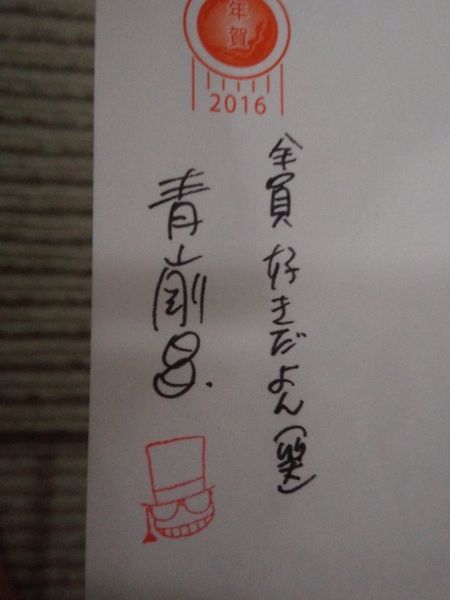 年賀
2016
全員好きだよん(笑)
青山剛昌.